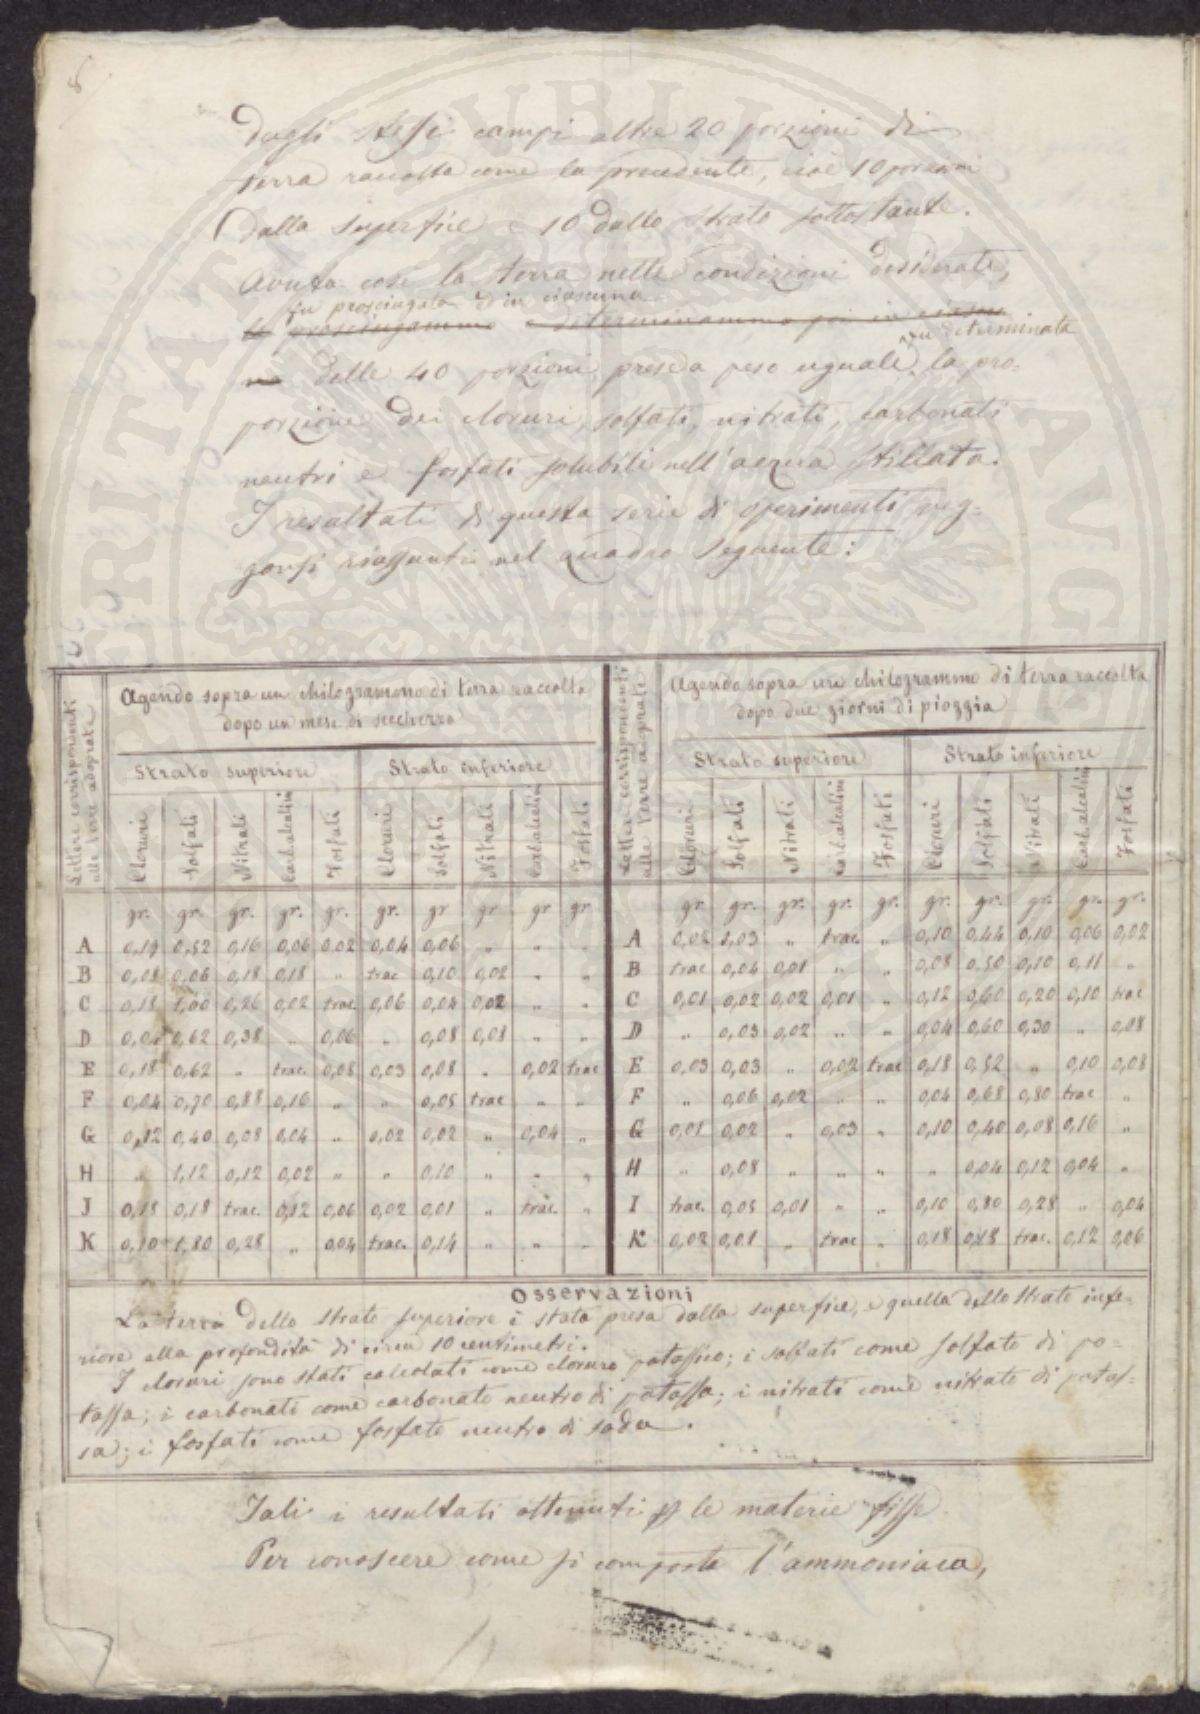 8
dagli stessi campi altre 20 porzioni di
terra raccolta come la precedente, cioè 10 porzioni
dalla superficie e 10 dallo strato sottostante.
Avuta così la terra nelle condizioni desiderate,
fu prosciugata e in ciascuna
le prosciugammo e determinammo poi in ciascu
fu determinata
na delle 40 porzioni, prese a peso uguale, la pro-
porzione dei cloruri, solfati, nitrati, carbonati
neutri e fosfati solubili nell'acqua stillata.
I resultati di questa serie di sperimenti veg-
gonsi riassunti nel quadro seguente:
Lettere corrispondenti alle terre adoprate
Agendo sopra un chilogrammo di terra raccolta
dopo un mese di secchezza
Strato superiore Strato inferiore
Cloruri Solfati Nitrati Carb.alcalini Fosfati Cloruri Solfati Nitrati Carb.alcalini Fosfati
gr. gr. gr. gr. gr. gr. gr gr gr gr
A 0,19 0,52 0,16 0,06 0,02 0,04 0,06 " " "
B 0,08 0,06 0,18 0,18 " trac 0,10 0,02 " "
C 0,18 1,00 0,26 0,02 trac 0,06 0,04 0,02 " "
D 0,04 0,62 0,38 " 0,06 " 0,08 0,08 " "
E 0,18 0,62 " trac. 0,08 0,03 0,08 " 0,02 trac
F 0,04 0,70 0,88 0,16 " " 0,05 trac " "
G 0,12 0,40 0,08 0,04 " 0,02 0,02 " 0,04 "
H " 1,12 0,12 0,02 " " 0,10 " " "
J 0,18 0,18 trac. 0,12 0,06 0,02 0,01 " trac. "
K 0,10 1,80 0,28 " 0,04 trac. 0,14 " " "
Lettere corrispondenti alle terre adoprate
Agendo sopra un chilogrammo di terra raccolta
dopo due giorni di pioggia
Strato superiore Strato inferiore
Cloruri Solfati Nitrati Carb.alcalini Fosfati Cloruri Solfati Nitrati Carb.alcalini Fosfati
gr. gr. gr. gr. gr. gr. gr. gr. gr. gr.
A 0,02 1,03 " trac. " 0,10 0,44 0,10 0,06 0,02
B trac 0,04 0,01 " " 0,08 0,50 0,10 0,11 "
C 0,01 0,02 0,02 0,01 " 0,12 0,60 0,20 0,10 trac
D " 0,03 0,02 " " 0,04 0,60 0,30 " 0,08
E 0,03 0,03 " 0,02 trac 0,18 0,52 " 0,10 0,08
F " 0,06 0,02 " " 0,04 0,68 0,80 trac "
G 0,01 0,02 " 0,03 " 0,10 0,40 0,08 0,16 "
H " 0,08 " " " " 0,04 0,12 0,04 "
I trac. 0,05 0,01 " " 0,10 0,80 0,28 " 0,04
K 0,02 0,01 " trac " 0,18 0,18 trac. 0,12 0,06
Osservazioni
La terra dello strato superiore è stata presa dalla superficie, e quella dello strato infe-
riore alla profondità di circa 10 centimetri.
I cloruri sono stati calcolati come cloruro potassico; i solfati come solfato di po-
tassa; i carbonati come carbonato neutro di potassa; i nitrati come nitrato di potas-
sa; i fosfati come fosfato neutro di soda.
Tali i resultati ottenuti per le materie fisse.
Per conoscere come si comporta l'ammoniaca,